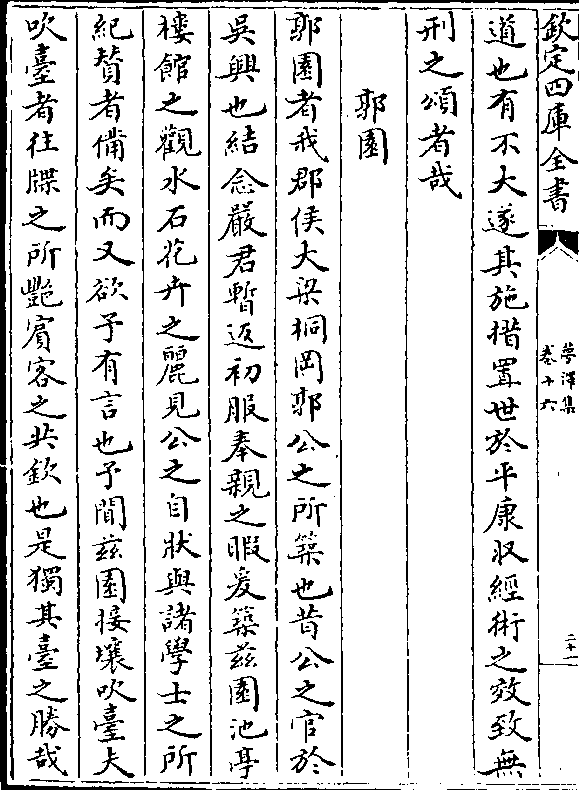 欽定四庫全書
夢澤集
卷十六
二十一
道也有不大遂其施措置世於平康収經術之效致無
刑之頌者哉
郭園
郭園者我郡侯大梁桐岡郭公之所築也昔公之官於
吳興也結念嚴君暫返初服奉親之暇爰築茲園池亭
樓館之觀水石花卉之麗見公之自狀與諸學士之所
紀賛者備矣而又欲予有言也予聞茲園接壤吹臺夫
吹臺者往牒之所艷賓客之共欽也是獨其臺之勝哉